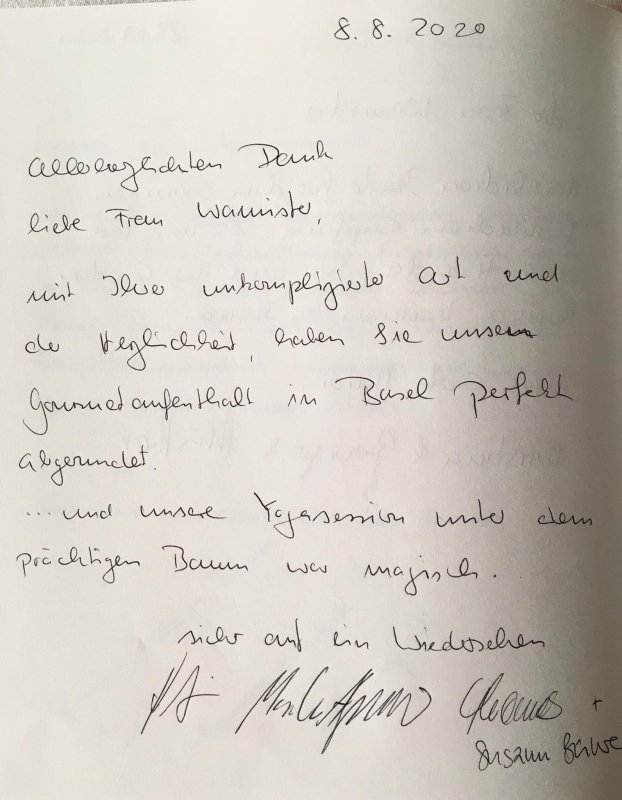 8. 8. 2020
allerherzlichsten Dank
liebe Frau
mit Ihrer unkomplizierte Art und
der Herzlichkeit, haben Sie unseren
Gourmetaufenthalt in Basel perfekt
abgerundet.
... und unsere Yogasession unter dem
prächtigen Baum war magisch.
sicher auf ein Wiedersehen
+
Susann